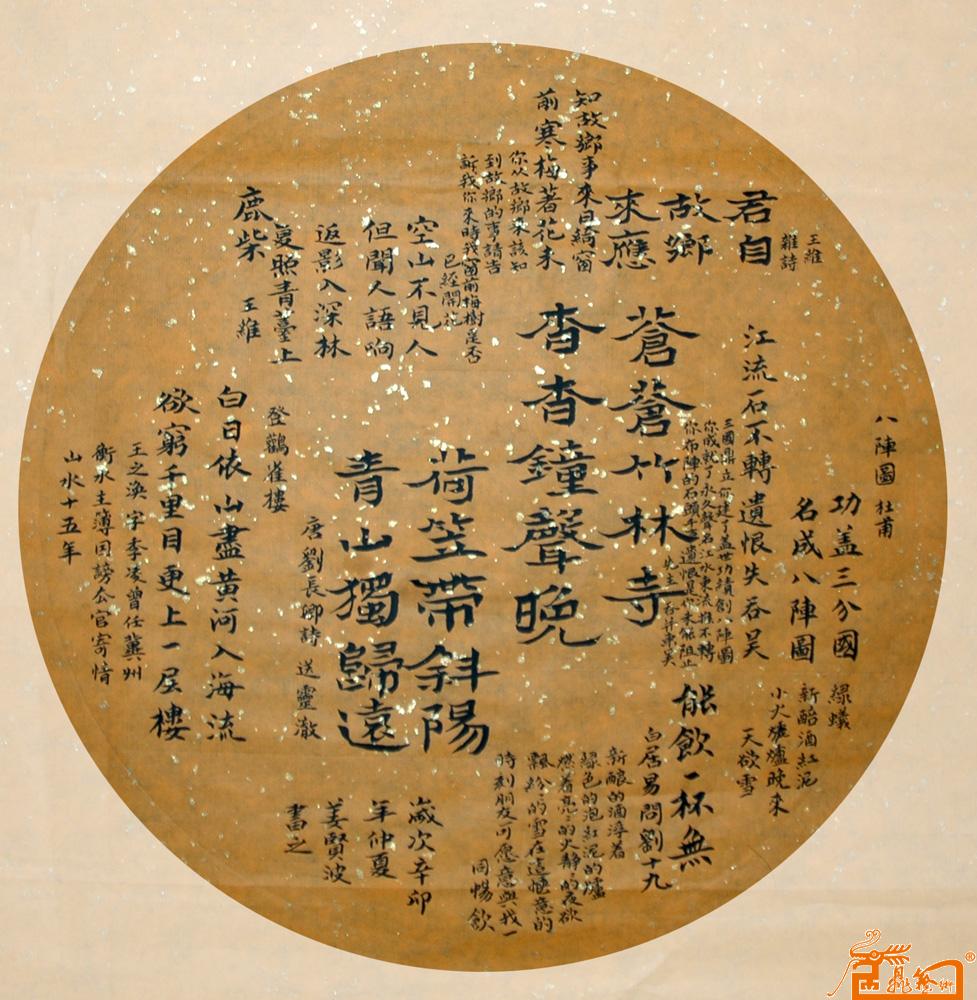 王維
雜詩
君自
故鄉
來應
知故鄉事來日綺窗
前寒梅著花未
你从故鄉來該知
到故鄉的事請告
訴我你來時我窗前梅樹是否
已經開花
八陣圖 杜甫
功盖三分國
名成八陣圖
江流石不轉遺恨失吞吴
三國鼎立你建了盖世功績創八陣圖
你成就了永久聲名江水東流推不轉
你布陣的石頭千古遺恨是你未能阻止
先主吞并東吴
蒼蒼竹林寺
杳杳鐘聲晚
荷笠帶斜陽
青山獨歸遠
唐劉長卿詩 送靈澈
空山不見人
但聞人語响
返影入深林
复照青薹上
鹿柴 王維
登鸛雀樓
白日依山盡黄河入海流
欲窮千里目更上一层樓
王之涣字季凌曾任冀州
衡水主簿因謗公官寄情
山水十五年
綠蟻
新醅酒紅泥
小火爐晚來
天欲雪
能飲一杯無
白居易問劉十九
新釀的酒浮着
緑色的泡紅泥的爐
燃着亮々的火静々的夜欲
飄紛々的雪在這惬意的
時刻朋友可愿意與我一
同暢飲
嵗次辛卯
年仲夏
姜賢波
書之